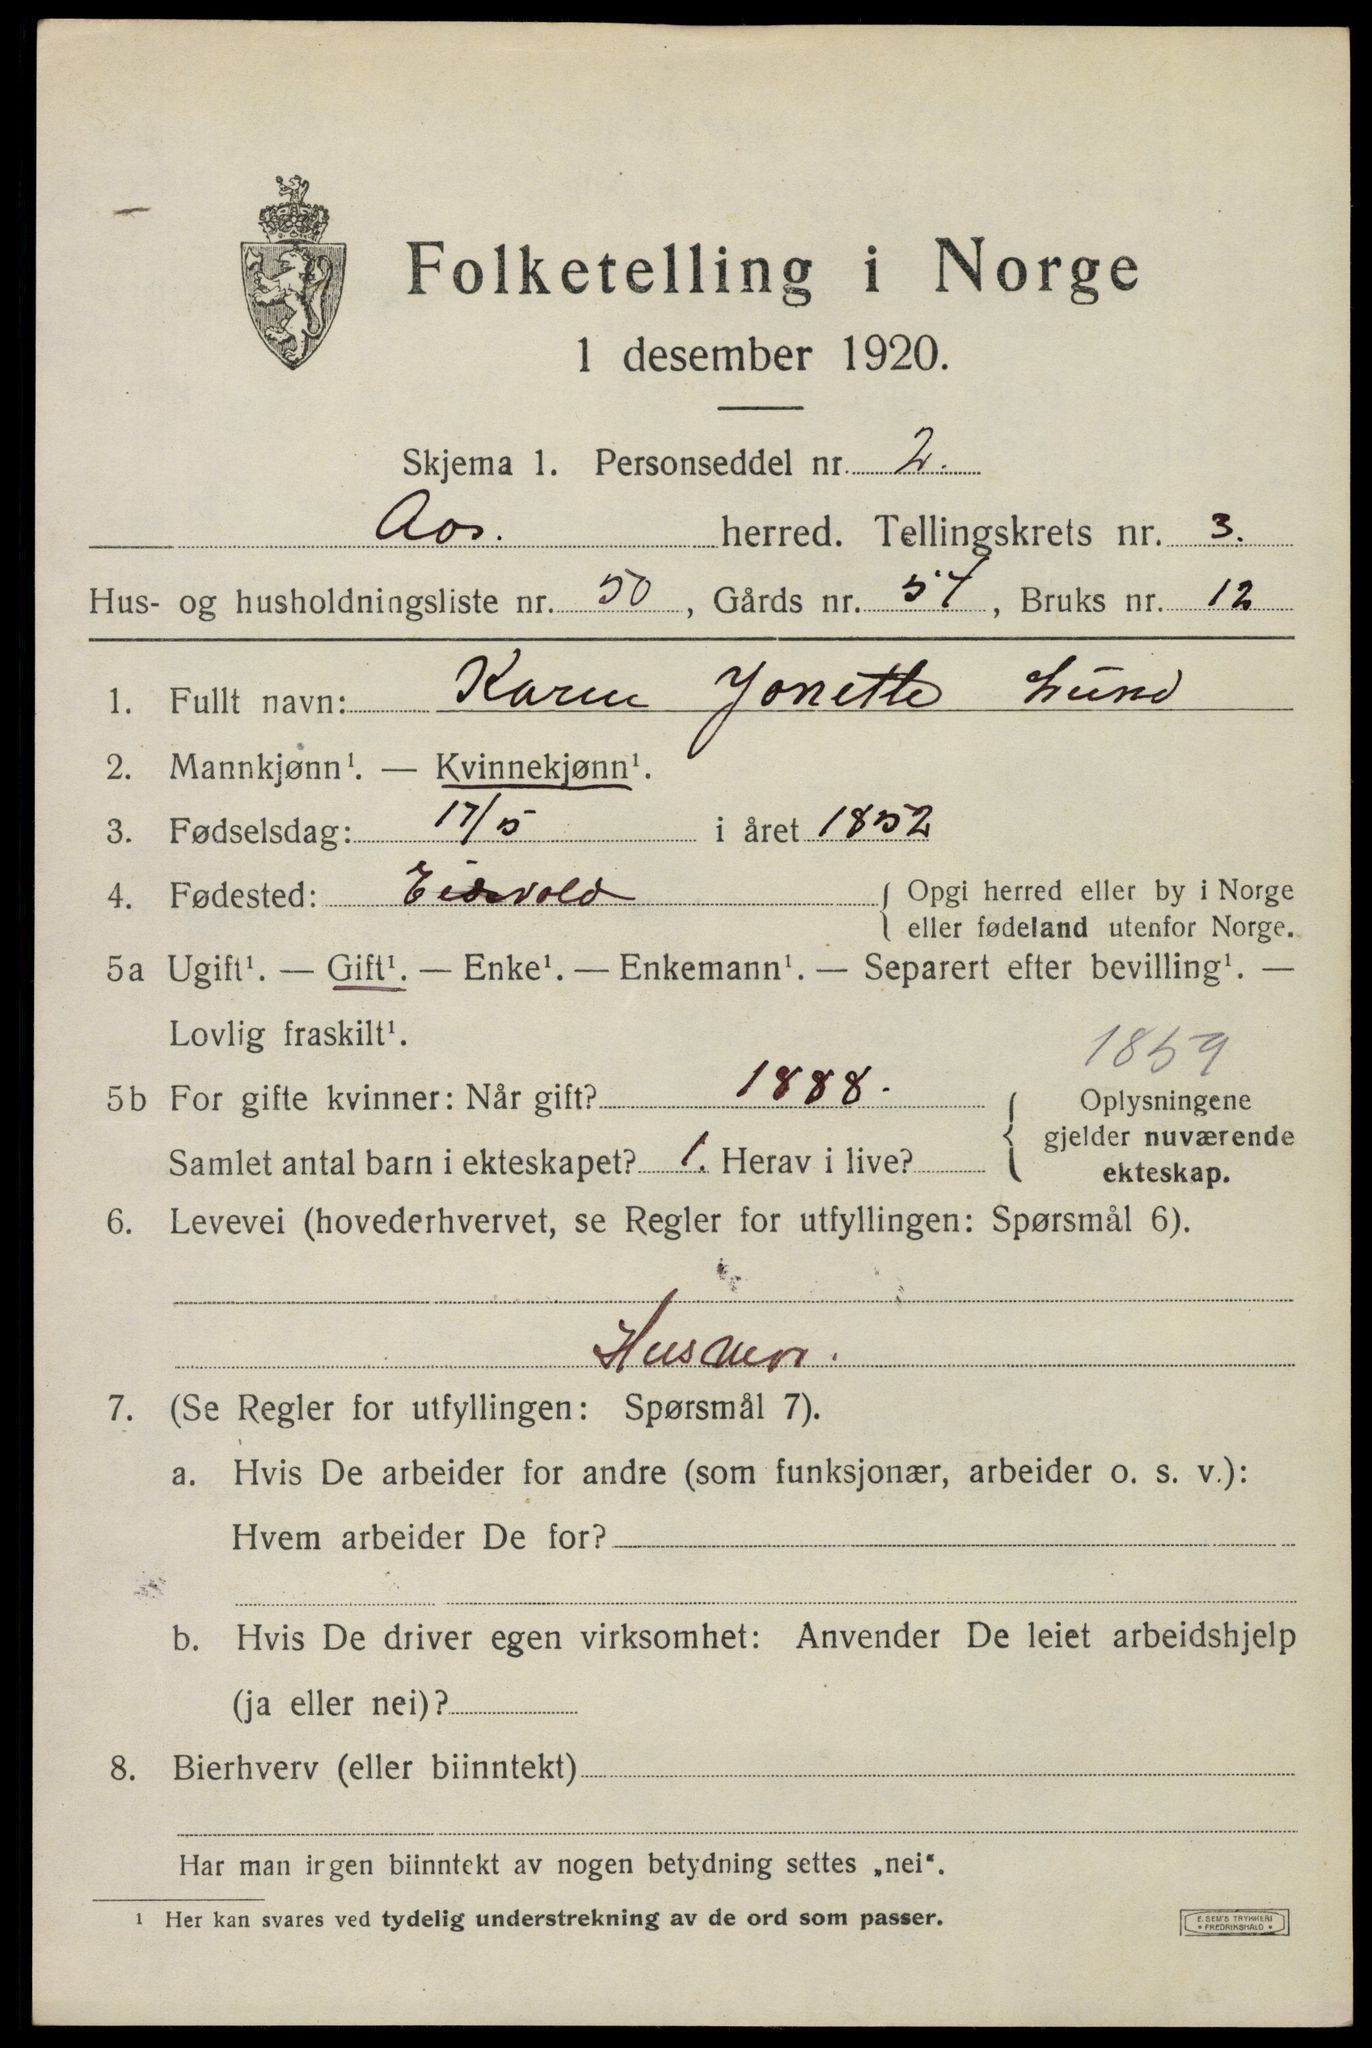 Folketelling i Norge
1 desember 1920.
Skjema 1. Personseddel nr. 2.
Aas. herred. Tellingskrets nr. 3.
Hus- og husholdningsliste nr. 50, Gårds nr. 57, Bruks nr. 12
1. Fullt navn: Karen Jonette Lund
2. Mannkjønn¹. — Kvinnekjønn¹.
3. Fødselsdag: 17/5 i året 1852
4. Fødested: Eidsvold { Opgi herred eller by i Norge
eller fødeland utenfor Norge.
5a Ugift¹. — Gift¹. — Enke¹. — Enkemann¹. — Separert efter bevilling¹. —
Lovlig fraskilt¹.
1859
5b For gifte kvinner: Når gift? 1888. { Oplysningene
gjelder nuværende
Samlet antal barn i ekteskapet? 1. Herav i live?
ekteskap.
6. Levevei (hovederhvervet, se Regler for utfyllingen: Spørsmål 6).
Husmor.
7. (Se Regler for utfyllingen: Spørsmål 7).
a. Hvis De arbeider for andre (som funksjonær, arbeider o. s. v.):
Hvem arbeider De for?
b. Hvis De driver egen virksomhet: Anvender De leiet arbeidshjelp
(ja eller nei)?
8. Bierhverv (eller biinntekt)
Har man irgen biinntekt av nogen betydning settes „nei“.
¹ Her kan svares ved tydelig understrekning av de ord som passer.
E. SEM'S TRYKKERI
• FREDRIKSHALD •